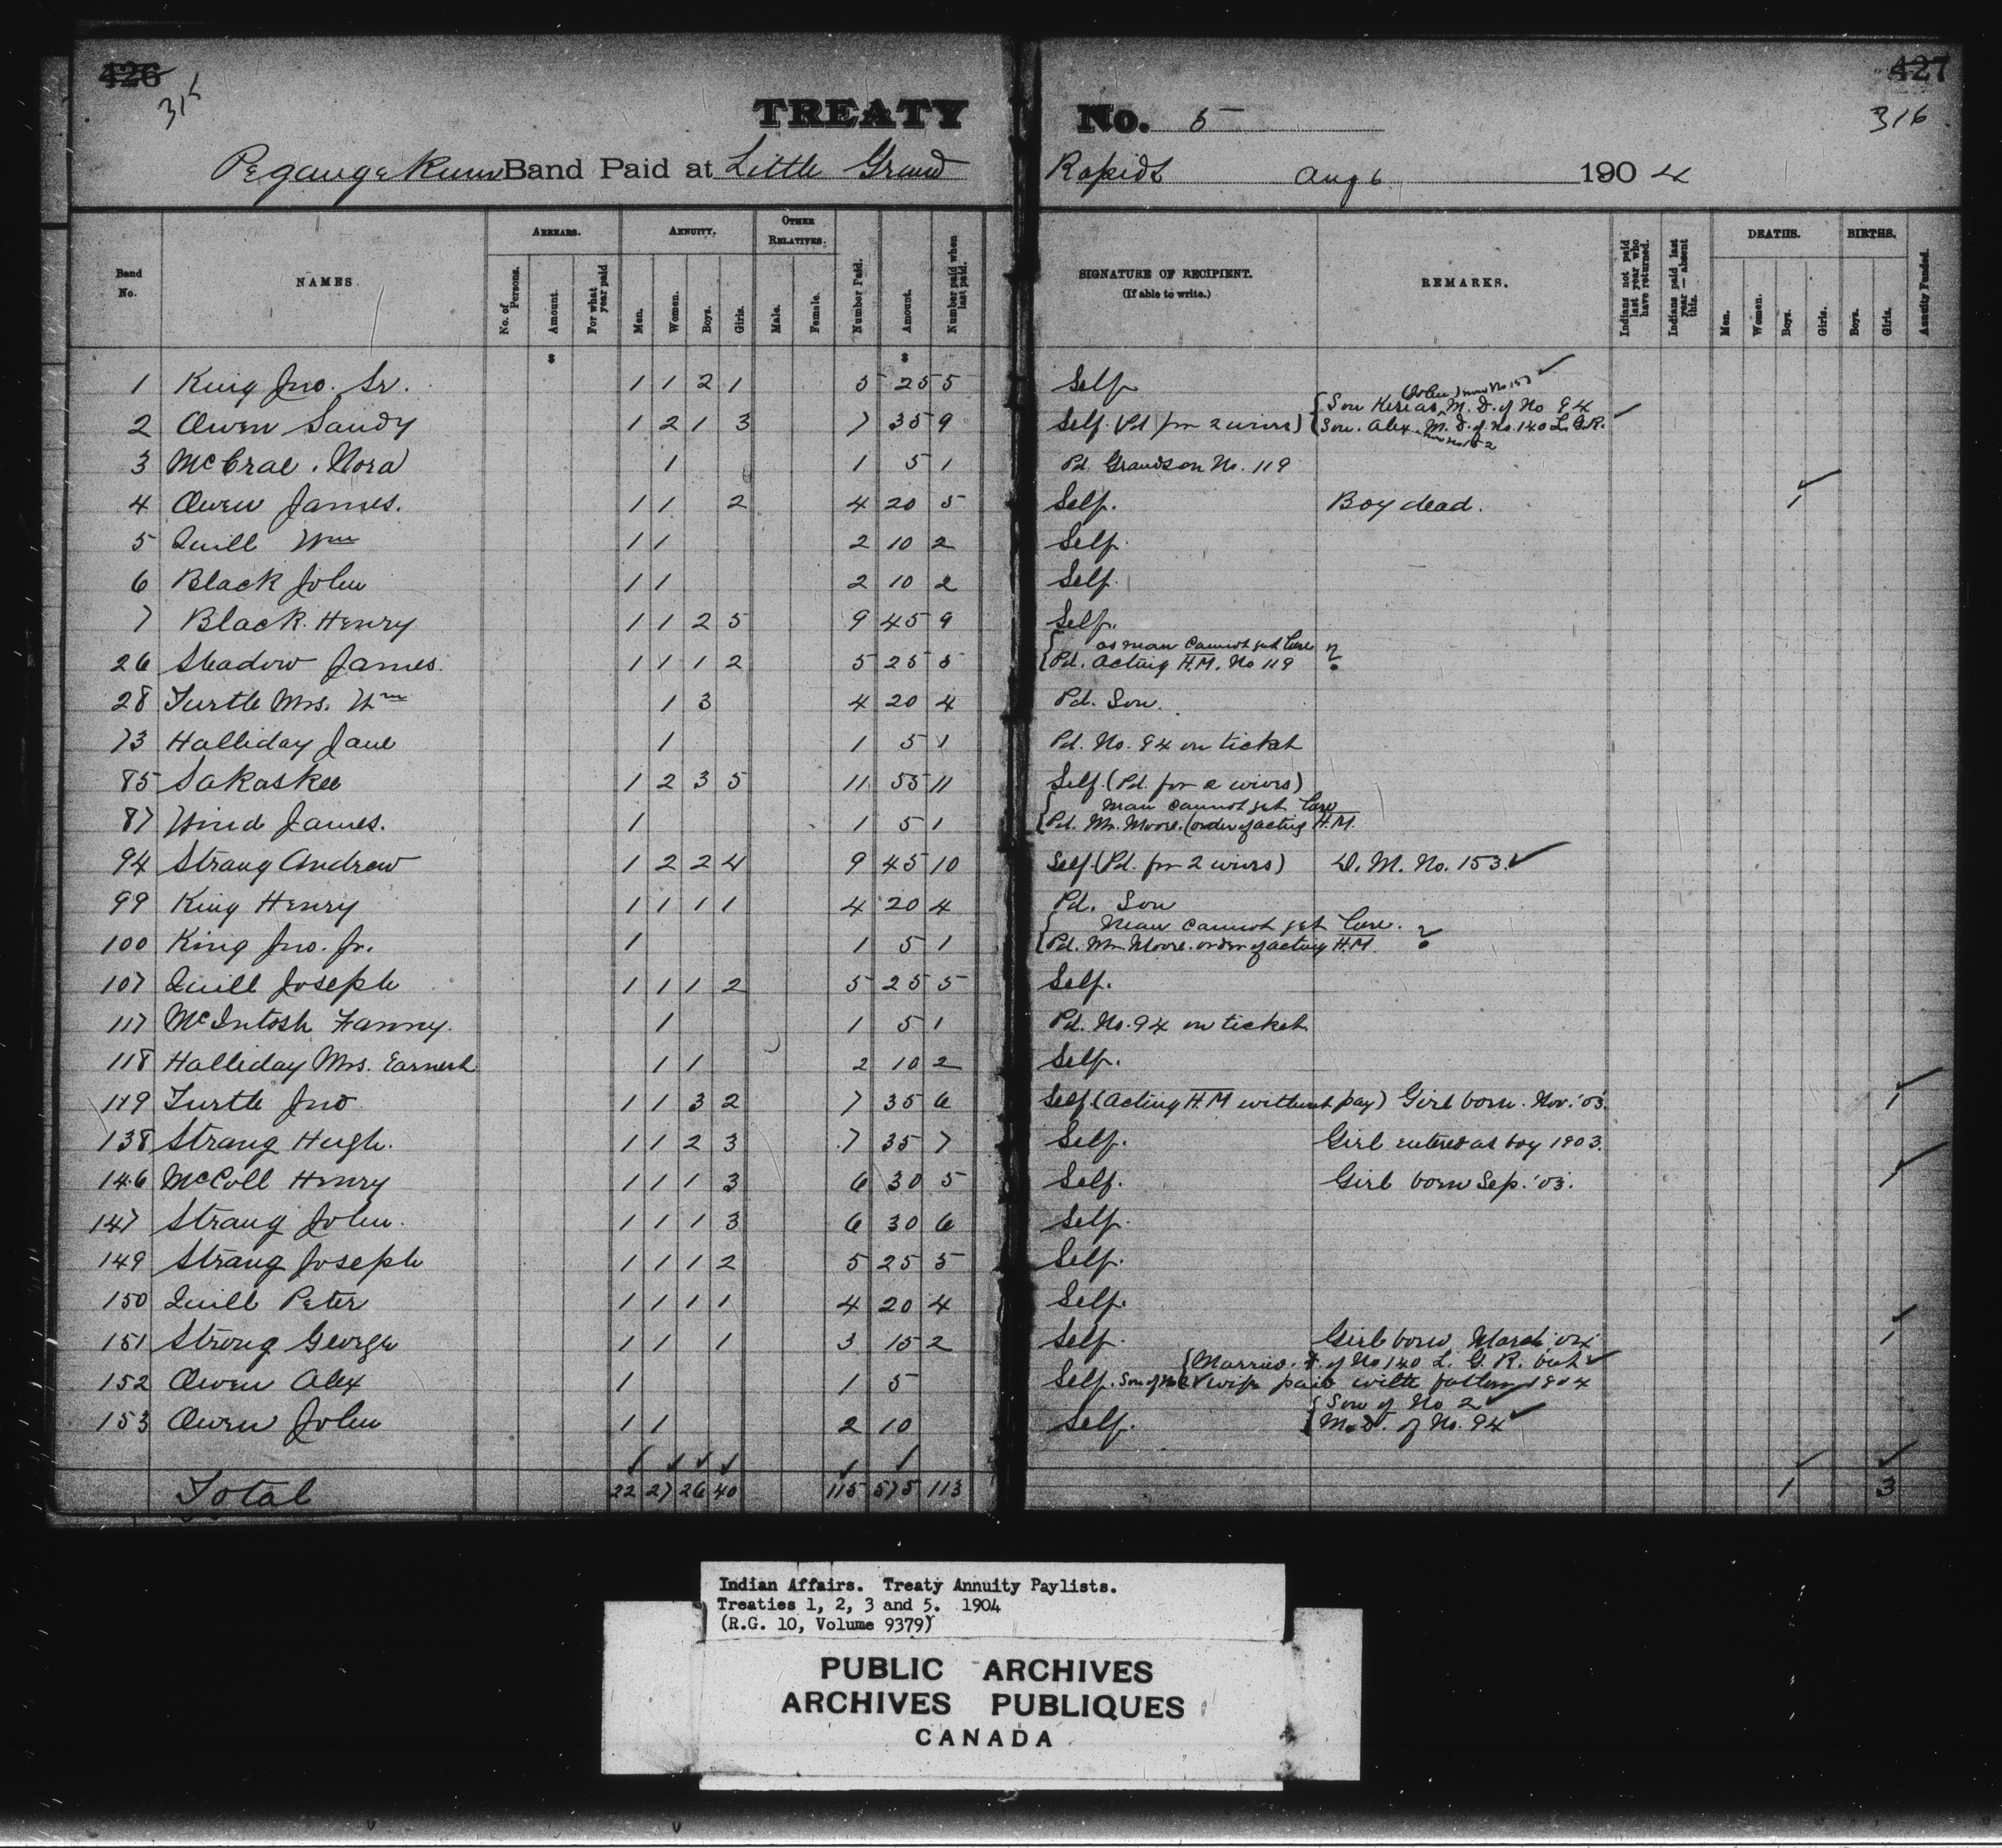 426 427
316 316
TREATY No. 5
Pegangekum Band Paid at Little Grand Rapids Aug 6 1904
Band No. NAMES ARREARS. No. of Persons. Amount. For what year paid ANNUITY. Men. Women. Boys. Girls. OTHER RELATIVES. Male. Female. Number Paid. Amount. Number paid when last paid. SIGNATURE OF RECIPIENT. (If able to write.) REMARKS. Indians not paid last year who have returned. Indians paid last year — absent this. DEATHS. Men. Women. Boys. Girls. BIRTHS. Boys. Girls. Annuity Funded.
$ $
1 King Jno. Sr. 1 1 2 1 5 25 5 Self
(John) now No 153
Son Kerias M. D. of No 94
2 Owen Sandy 1 2 1 3 7 35 9 Self (Pd for 2 wives) Son. Alex. M. D. of No. 140 L. G. R.
3 McCrae. Nora 1 1 5 1 Pd. Grandson No. 119
4 Owen James. 1 1 2 4 20 5 Self. Boy dead. 1
5 Quill Wm 1 1 2 10 2 Self.
6 Black John 1 1 2 10 2 Self.
7 Black Henry 1 1 2 5 9 45 9 Self.
as man cannot get here
26 Shadow James. 1 1 1 2 5 25 5 Pd. Acting H.M. No 119 ?
28 Turtle Mrs. Wm 1 3 4 20 4 Pd. Son.
73 Halliday Jane 1 1 5 1 Pd. No. 94 on ticket
85 Sakaskee 1 2 3 5 11 55 11 Self. (Pd. for 2 wives)
Man cannot get here
87 Wind James. 1 1 5 1 Pd. Mr. Moore. (order of acting H.M.
94 Strang Andrew 1 2 2 4 9 45 10 Self. (Pd. for 2 wives) D. M. No. 153.
99 King Henry 1 1 1 1 4 20 4 Pd. Son
Man cannot get here.
100 King Jno. Jr. 1 1 5 1 Pd. Mr Moore. order of acting H.M. ?
107 Quill Joseph 1 1 1 2 5 25 5 Self.
117 McIntosh Fanny. 1 1 5 1 Pd. No. 94 on ticket
118 Halliday Mrs. Earnest 1 1 2 10 2 Self.
119 Turtle Jno 1 1 3 2 7 35 6 Self (Acting H.M without pay) Girl born. Nov. '03. 1
138 Strang Hugh. 1 1 2 3 7 35 7 Self. Girl entered as boy 1903.
146 McColl Henry 1 1 1 3 6 30 5 Self. Girl born Sep. '03. 1
147 Strang John. 1 1 1 3 6 30 6 Self.
149 Strang Joseph 1 1 1 2 5 25 5 Self.
150 Quill Peter 1 1 1 1 4 20 4 Self.
151 Strong George 1 1 1 3 15 2 Self. Girl born March '04 1
Married. D. of No 140 L. G. R. but
152 Owen Alex 1 1 5 Self. Son of No 2 wife paid with father 1904
Son of No 2
153 Owen John 1 1 2 10 Self. M. D. of No. 94
Total 22 27 26 40 115 575 113 1 3
Indian Affairs. Treaty Annuity Paylists.
Treaties 1, 2, 3 and 5. 1904
(R.G. 10, Volume 9379)
PUBLIC ARCHIVES
ARCHIVES PUBLIQUES
CANADA